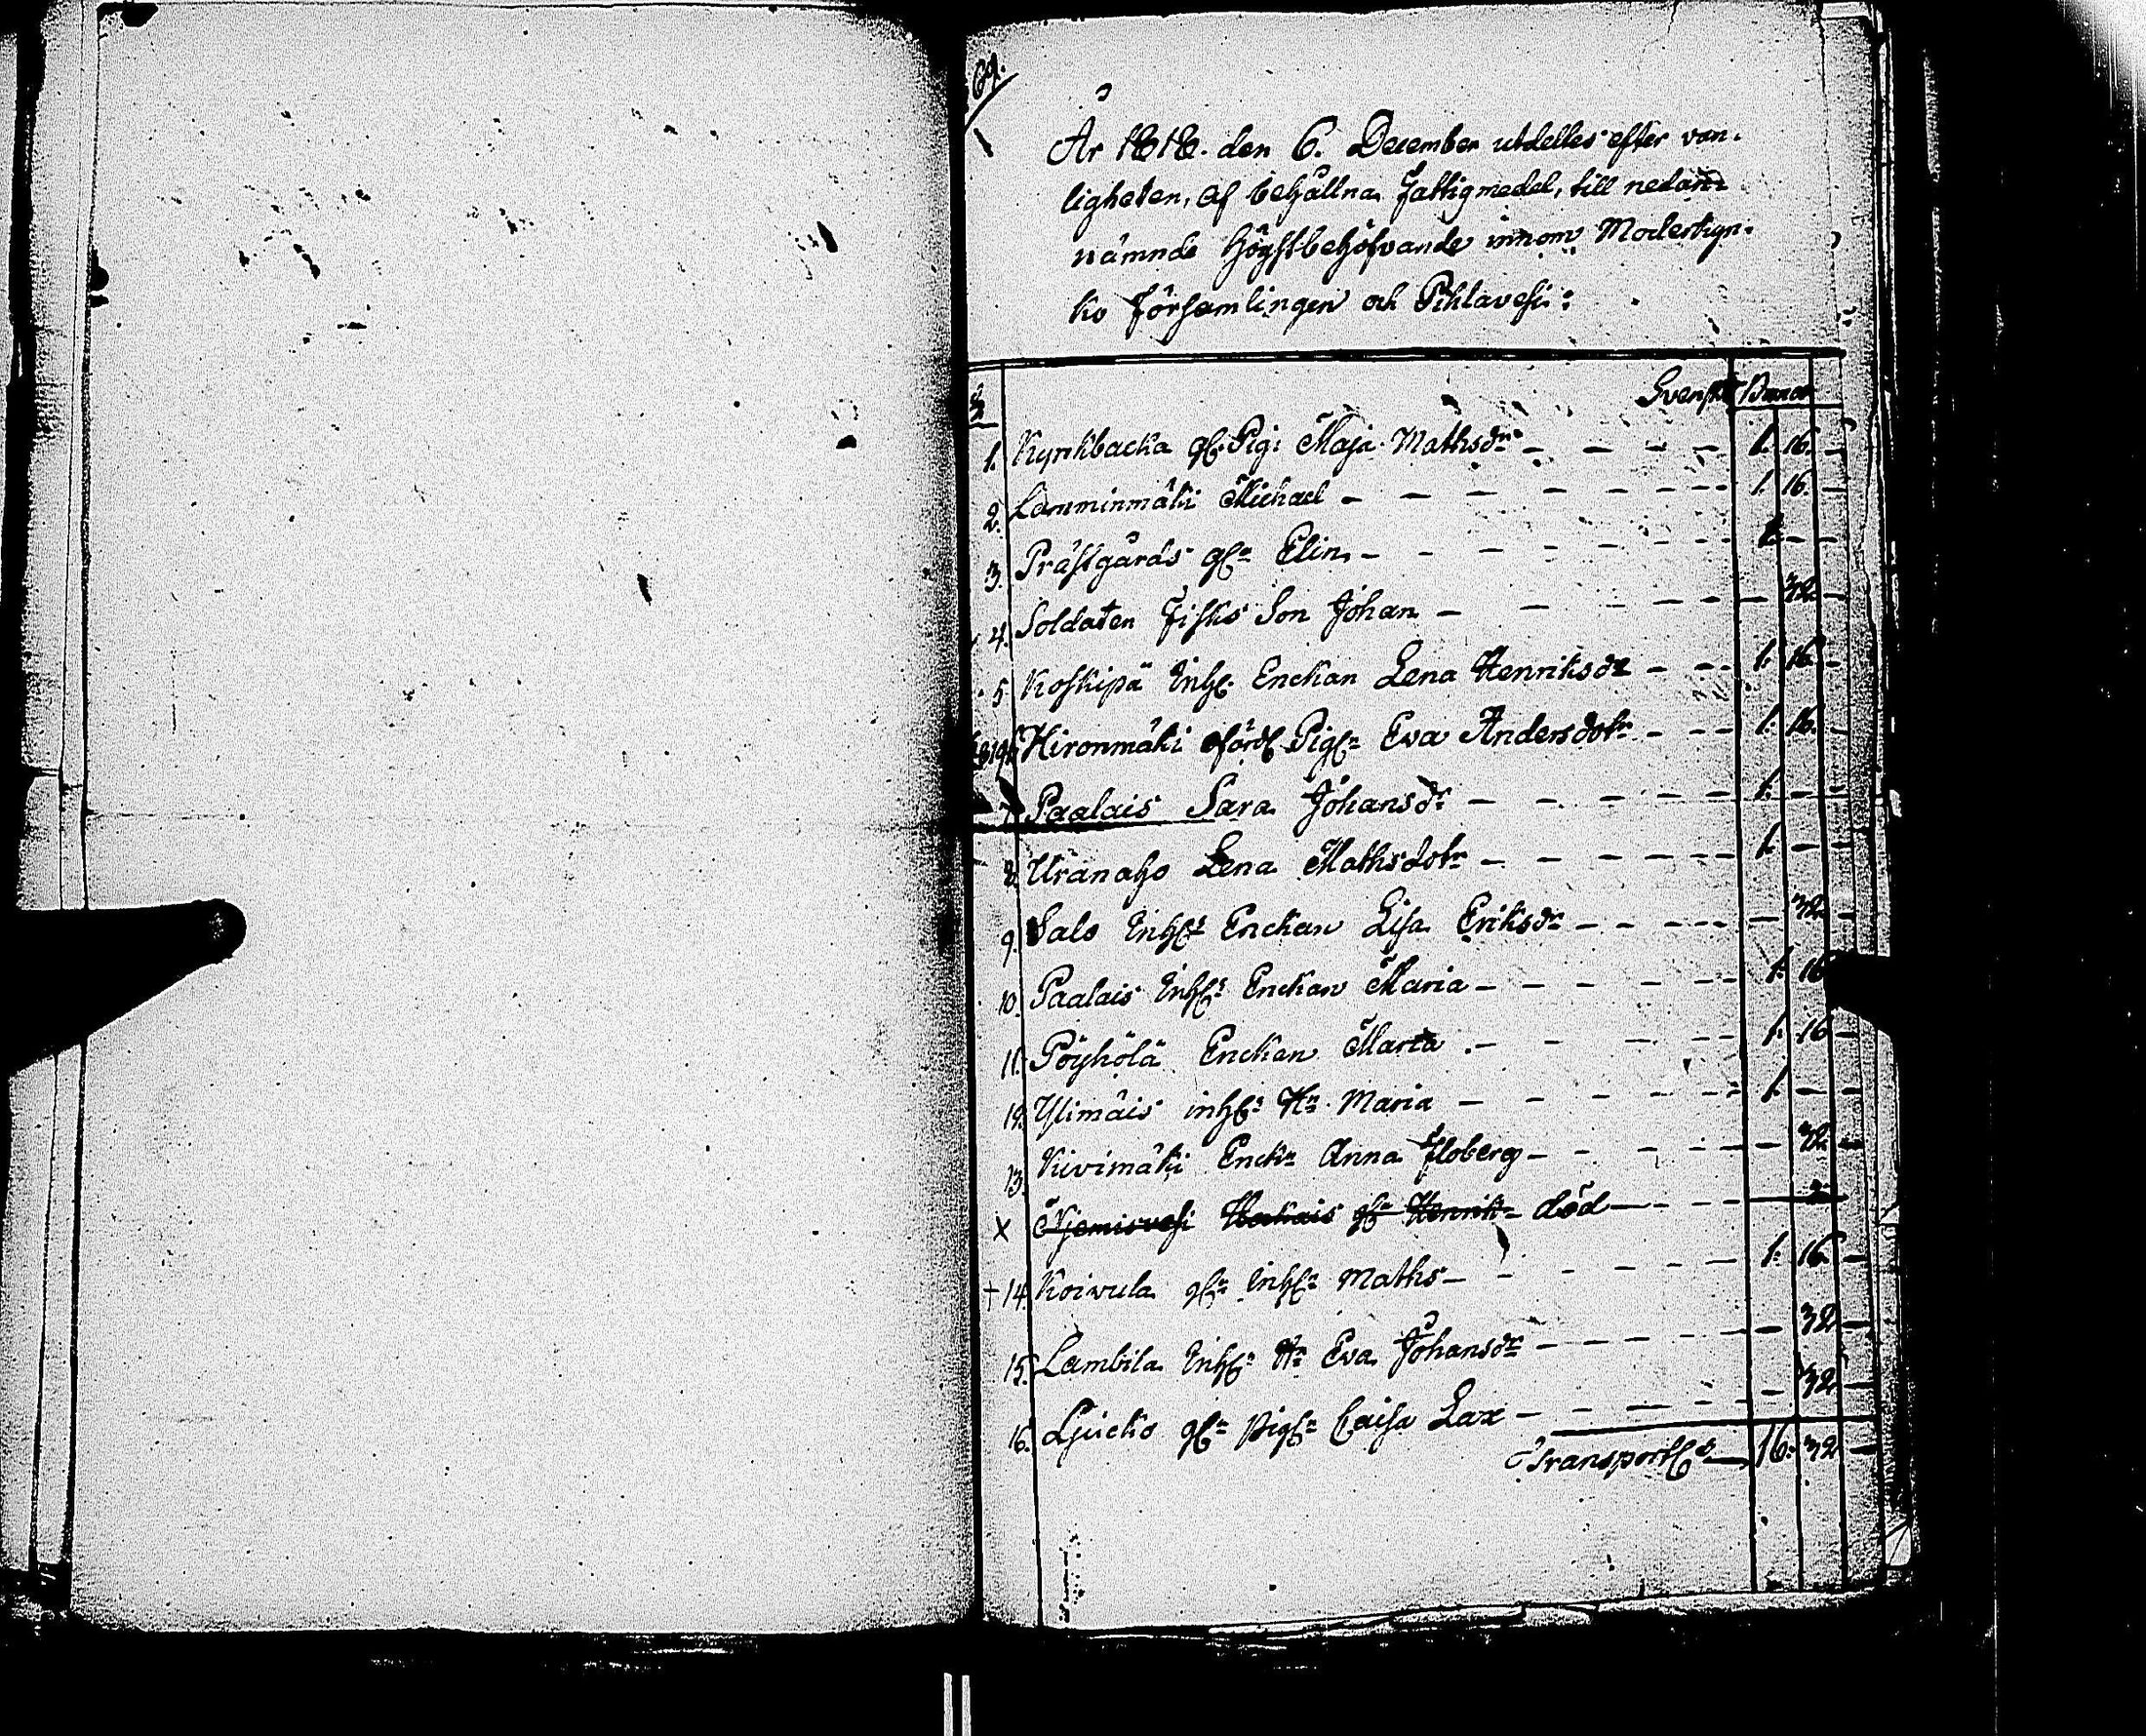 69.
År 1818. den 6. December utdeltes efter van-
ligheten, af behållna fattigmedel, till nedan-
nämnde högstbehöfvande innom Moderkyr-
ko församlingen och Pihlavesi:
Svenskt Banco
1. Kyrkbacka gl. Pig: Maja Mathsdr - - - - 1. 16. -
2. Lamminmäki Michael - - - - - - - 1. 16. -
3. Prästgårds gln Elin - - - - - - - - -
4. Soldaten Fisks Son Johan - - - - - - 32 -
5. Koskipä Inh. Enckan Lena Henriksdr - - - 1. 16. -
Hironmäki Pign Eva Andersdotr - - - 1. 16. -
7. Paalais Sara Johansdr - - - - - 1. - -
8. Uranaho Lena Mathsdotr - - - - - 1. - -
9. Salo Inhs Enckan Lisa Eriksdr - - - - - 32 -
10. Paalais Inhs Enckan Maria - - - - - 1. 16
11. Pöyhölä Enckan Marta - - - - - 1. 16 -
12. Ylimäis inhs Hu Maria - - - - - 1. - -
13. Kivimäki Enckn Anna Floberg - - - - - 32 -
x död - - -
+ 14. Koivula gln Inhn Maths - - - - - 1. 16. -
15. Lambila Inhs Hu Eva Johansdr - - - - - 32 -
16. gln pign Caisa Lax - - - - - 32 -
Transport 16. 32 -